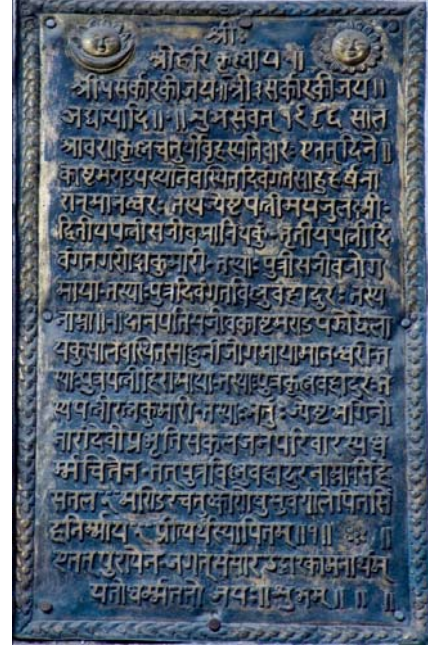 श्रीः
श्रीहरि कृष्णाय ॥
श्री ५ सर्कारकी जय ॥ श्री ३ सर्कारकी जय ॥
अद्येत्यादि ॥ ॥ शुभ सवत् १९८६ साल
श्रावण कृष्ण चतुर्थी वृहस्पतिवार एतत् दिने ॥
काष्टमराडपस्थाने वास्थित दिवंगत साहु हर्ष ना
रान मानन्धरः तस्य ज्येष्ट पत्नी मयजुलक्ष्मीः
द्वितीय पत्नी सजीव मानि थकुं तृतीय पत्नी दि
वंगत गरोश कुमारी तस्याः पुत्री सजीव जोग
माया तस्याः पुत्र दिवंगत विष्णु वहादुरः तस्य
नाम्ना ॥ दान पति सजीव काष्टमराडप
वास्थित साहुनी जोगमाया मानन्धरी त
स्याः पुत्र पत्नी हिरामाया तस्याः पुत्र वहादुरः त
स्य पत्नी रत्नकुमारी तस्याः ज्येष्ट भगिनी
नारादेवी प्रभृति सकल जन परिवारस्य ध
र्म्म चित्तेन तत् पुत्र विष्णु वहादुर नाम्ना
सुवर्ण लेपित सिं
प्रीत्यर्थं स्थापितम् ॥१॥
एतत् पुरायेन जगत् संसार उद्धार कामनार्थम्
यतो धर्म्म ततो जय ॥ शुभम् ॥ ॥